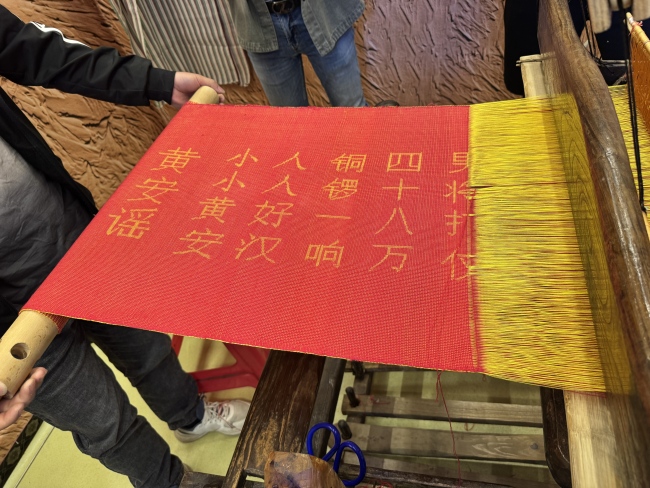 黄安谣
小小黄安
人人好汉
铜锣一响
四十八万
男将打仗